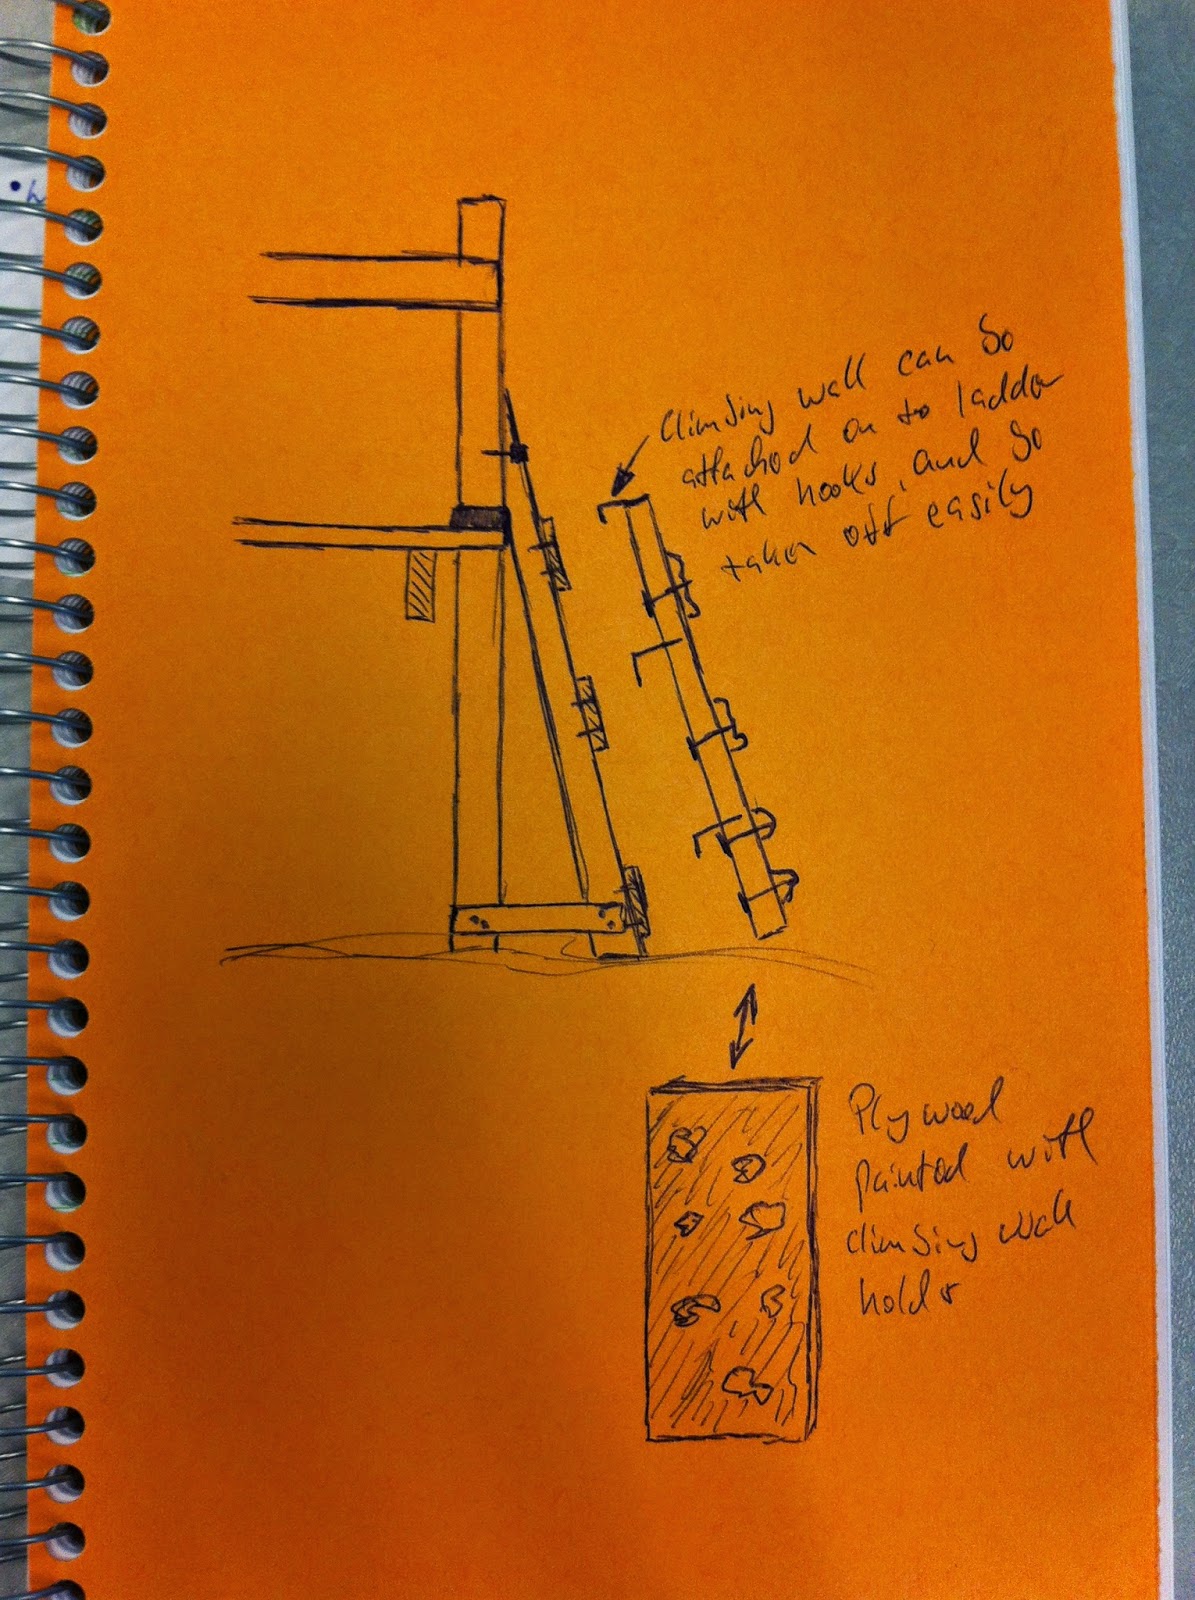 Climbing wall can be
attached on to ladder
with hooks, and be
taken off easily
Plywood
painted with
climbing wall
holds